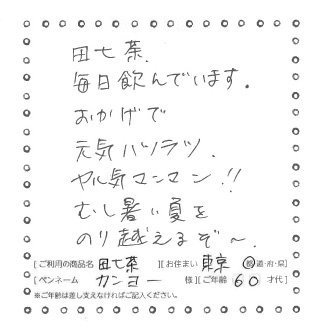 田七茶.
毎日飲んでいます.
おかげで
元気ハツラツ.
ヤル気マンマン!!
むし暑い夏を
のり越えるぞ〜.
[ご利用の商品名 田七茶 ][お住まい 東京 都道・府・県]
[ペンネーム カンヨー 様][ご年齢 60 才代]
※ご年齢は差し支えなければご記入ください。